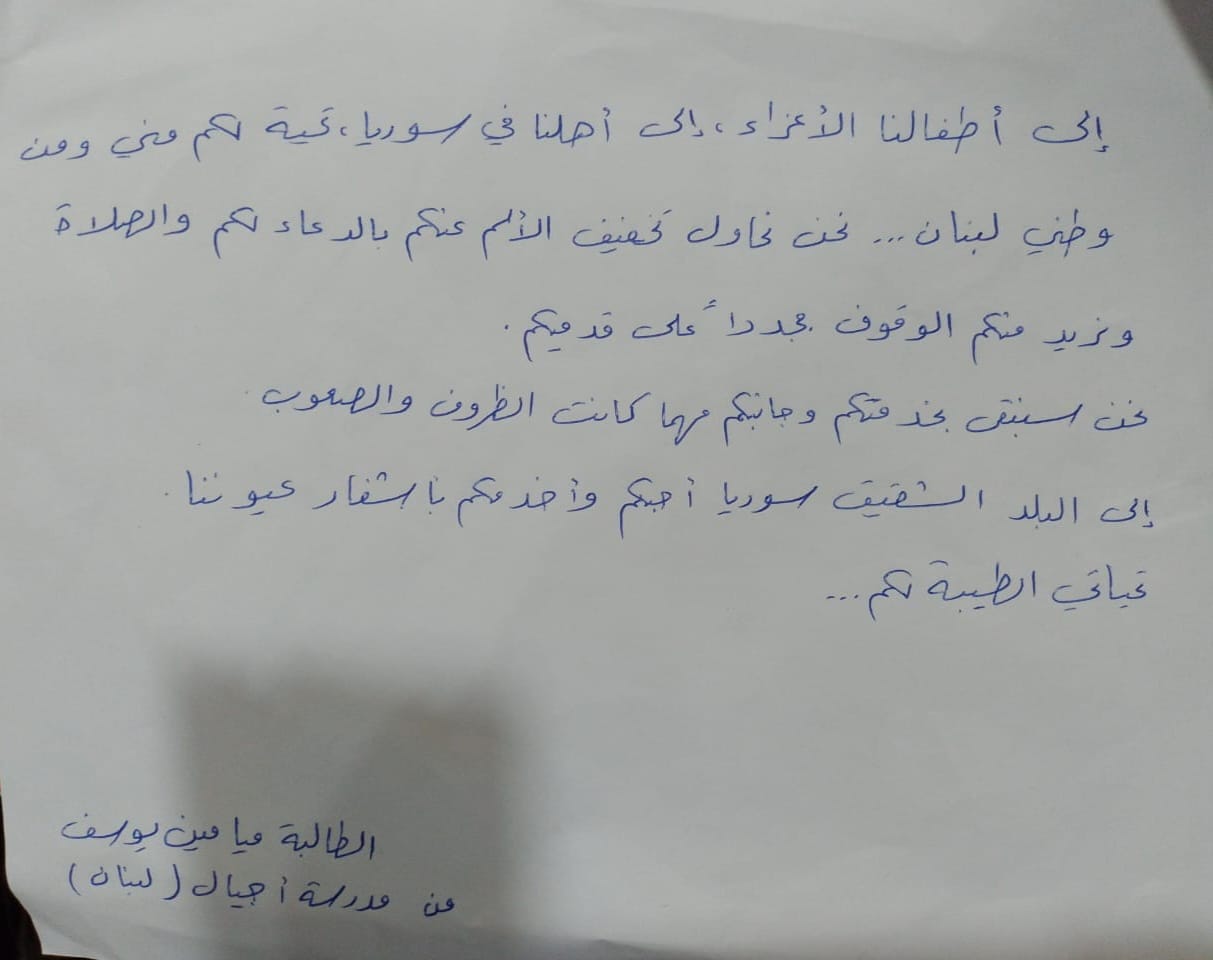 إلى أطفالنا الأعزاء، إلى أهلنا في سوريا، تحية لكم مني ومن
وطني لبنان... نحن نحاول تخفيف الألم عنكم بالدعاء لكم والصلاة
ونريد منكم الوقوف مجدداً على قدميكم.
نحن سنبقى بخدمتكم وجانبكم مهما كانت الظروف والصعوب.
إلى البلد الشقيق سوريا أحبكم وأخدمكم باشفار عيوننا.
تحياتي الطيبة لكم...
الطالبة ميامين يوسف
من مدرسة أجيال (لبنان)